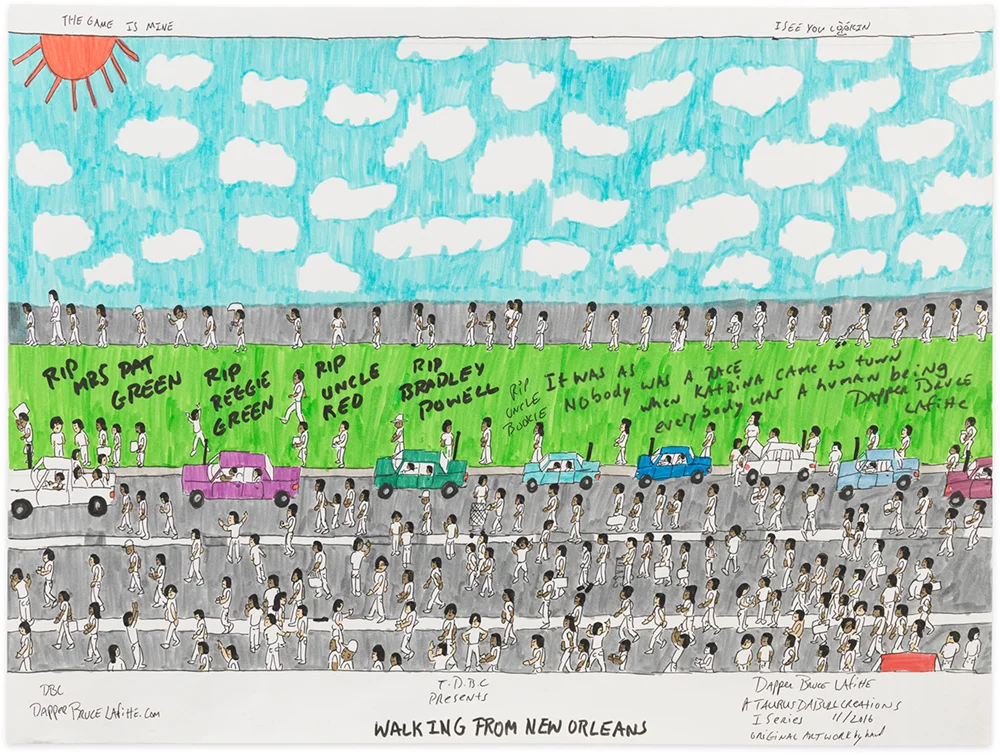 THE GAME IS MINE
I SEE YOU LOOKIN
RIP
MRS PAT
GREEN
RIP
REEGIE
GREEN
RIP
UNCLE
RED
RIP
BRADLEY
POWELL
RIP
UNCLE
BOOKIE
IT WAS AS
NOBODY WAS A RACE
when KATRINA CAME TO TOWN
everybody was A human being
DAPPER BRUCE
LAFITTE
DBC
DAPPER BRUCE LAFITTE.COM
T.D.B.C
PRESENTS
WALKING FROM NEW ORLEANS
DAPPER BRUCE LAFITTE
A TAURUS DABULL CREATIONS
I SERIES 11/2016
ORIGINAL ART WORK by hand